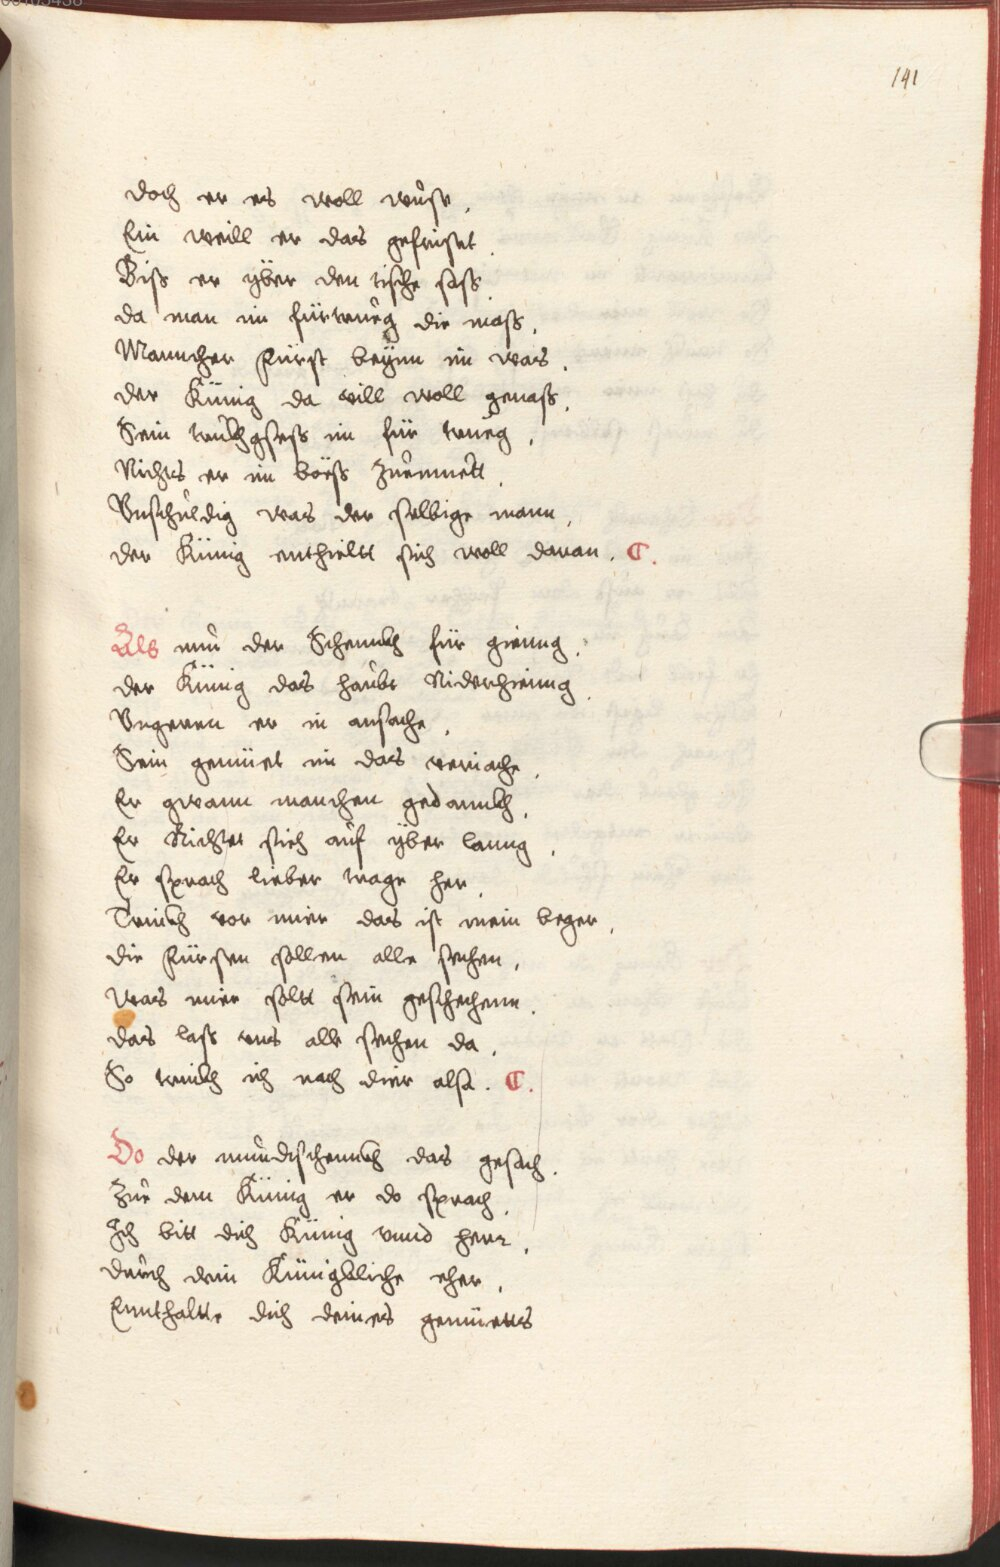 141
doch er es woll wuse,
Ein weill er das gefristet
Biß er yber den tische saß,
da man im fürtrueg die maß,
Manncher fürst beÿnn im was,
der Künig da vill woll genaß,
Sein truchgseß im für trueg,
Nichts er im böeß zuemuett,
Vnschuldig was der selbige mann,
der Künig enthieltt sich woll daran. C.
Als nun der Schennckh für gienng,
der Künig das haubt Niderhienng
Vngeren er in ansache,
Sein gemüet im das veriache,
Er gwann manchen gedannckh,
Er Richtet sich auf yber lanng,
Er sprach lieber trage her,
Trinckh vor mier das ist mein beger,
die fürsen sollen alle sechen,
was mier soltt sein geschechenn,
das laß vns alle sechen da,
So trinckh ich nach dier also. C.
Do der mundschennckh das gesach,
Zue dem Künig er do sprach,
Ich bitt dich Künig vnnd herr,
durch dein Künigkliche eher,
Ennthaltte dich deines gemüetts